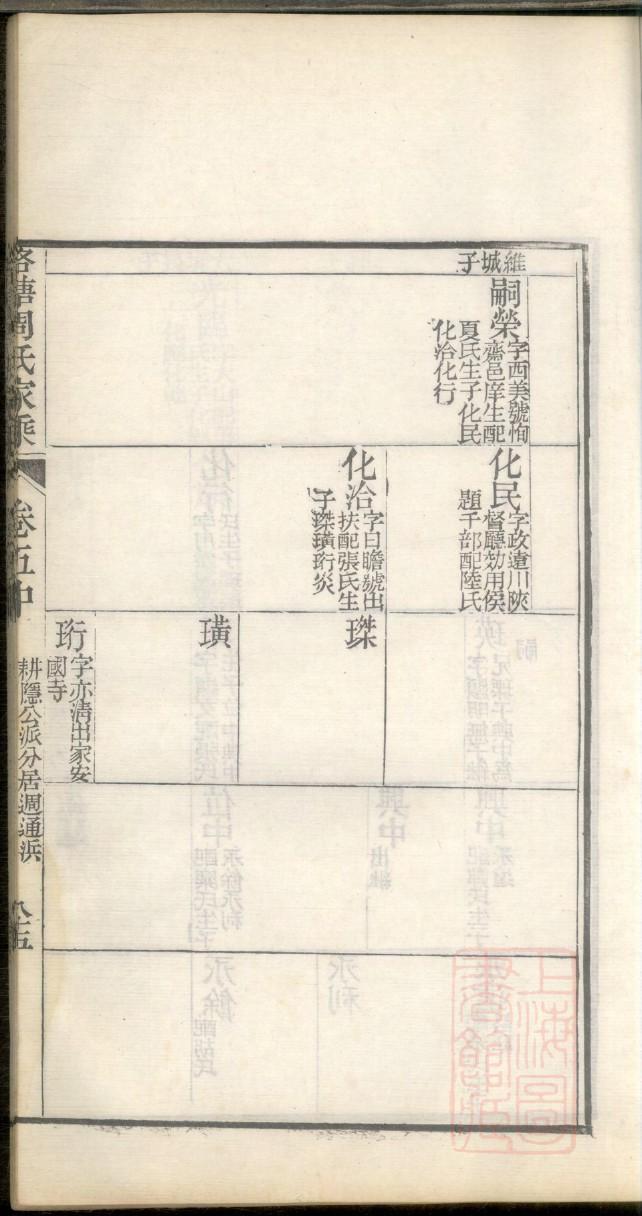 維城子
嗣榮
字西美號恂
齋邑庠生配
夏氏生子化民
化洽化行
化民
字政遠川陝
督廳効用侯
題千部配陸氏
化洽
字曰瞻號出
扶配張氏生
子璨璜珩炎
璨
璜
珩
字亦清出家安
國寺
洛塘周氏家乘
卷五中
耕隱公派分居週通浜
上海圖書館藏